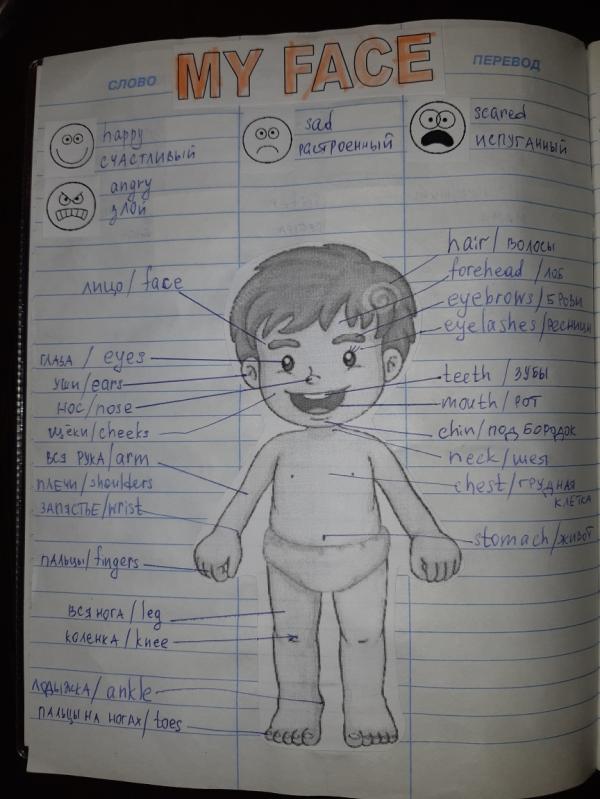 СЛОВО
MY FACE
ПЕРЕВОД
happy
СЧАСТЛИВЫЙ
sad
РАСТРОЕННЫЙ
scared
ИСПУГАННЫЙ
angry
ЗЛОЙ
ЛИЦО / face
ГЛАЗА / eyes
УШИ / ears
НОС / nose
ЩЁКИ / cheeks
ВСЯ РУКА / arm
ПЛЕЧИ / shoulders
ЗАПЯСТЬЕ / wrist
ПАЛЬЦЫ / fingers
ВСЯ НОГА / leg
КОЛЕНКА / knee
ЛОДЫЖКА / ankle
ПАЛЬЦЫ НА НОГАХ / toes
hair / ВОЛОСЫ
forehead / ЛОБ
eyebrows / БРОВИ
eyelashes / РЕСНИЦЫ
teeth / ЗУБЫ
mouth / РОТ
chin / ПОД БОРОДОК
neck / ШЕЯ
chest / ГРУДНАЯ
КЛЕТКА
stomach / ЖИВОТ